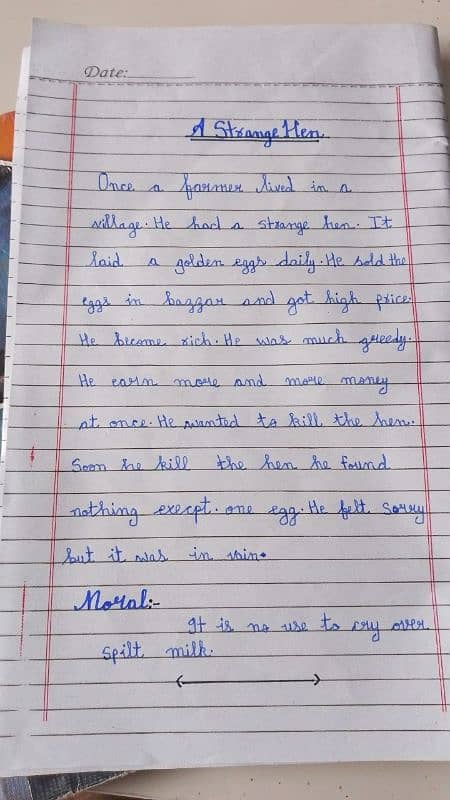 Date:
A Strange Hen
Once a farmer lived in a
village. He had a strange hen. It
laid a golden eggs daily. He sold the
eggs in bazzar and got high price.
He become rich. He was much greedy.
He earn more and more money
at once. He wanted to kill the hen.
Soon he kill the hen he found
nothing execpt. one egg. He felt sorry
but it was in vain.
Moral:-
It is no use to cry over
spilt milk.